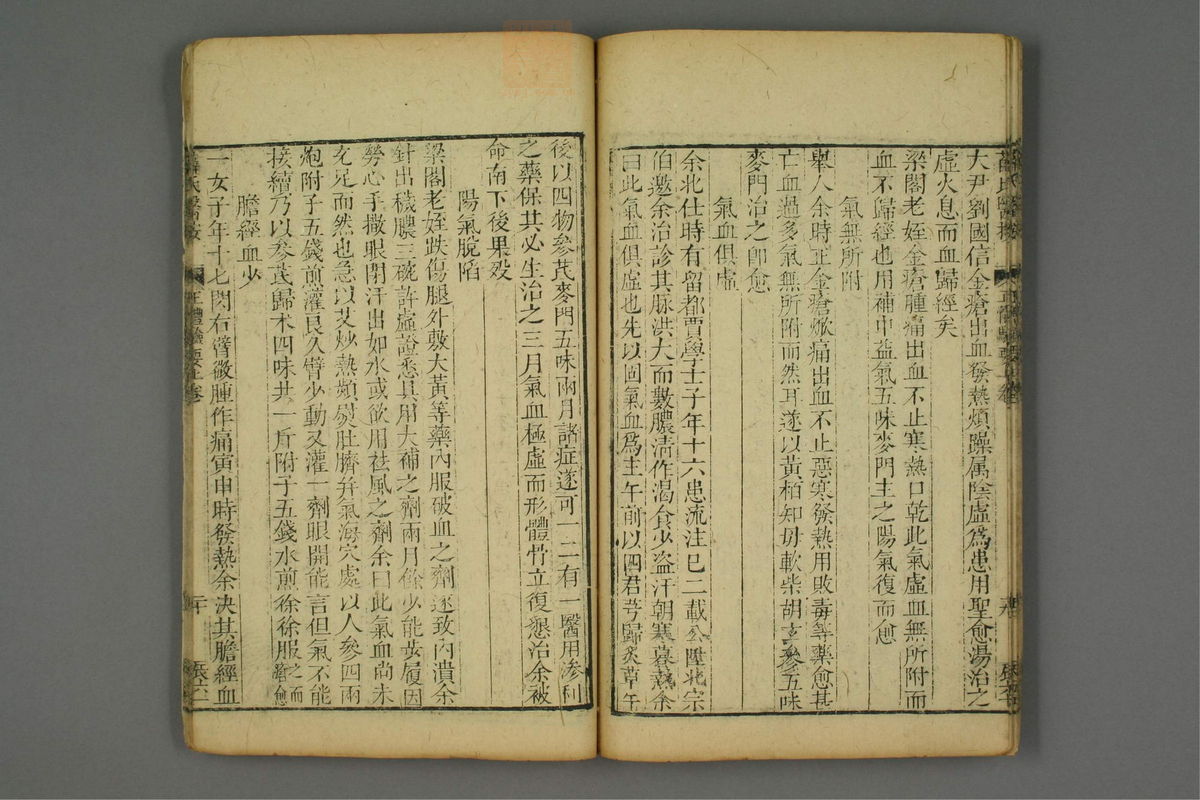 大尹劉國信金瘡出血發熱煩躁属陰虛為患用聖愈湯治之
虛火息而血歸經矣
梁閣老姪金瘡腫痛出血不止寒熱口乾此氣虛血無所附而
血不歸經也用補中益氣五味麥門主之陽氣復而愈
氣無所附
舉人余時正金瘡焮痛出血不止惡寒發熱用敗毒等藥愈甚
亡血過多氣無所附而然耳遂以黃栢知母軟柴胡玄參五味
麥門治之即愈
氣血俱虛
余北仕時有留都賈學士子年十六患流注已二載公陞北宗
伯邀余治診其脉洪大而數膿清作渴食少盗汗朝寒暮熱余
曰此氣血俱虛也先以固氣血爲主午前以四君芎歸炙草午
後以四物參芪麥門五味兩月諸症遂可一二有一醫用滲利
之藥保其必生治之三月氣血極虛而形體骨立復懇治余被
命南下後果歿
陽氣脫陷
梁閣老姪跌傷腿外敷大黃等藥內服破血之劑遂致內潰余
針出穢膿三碗許虛證悉具用大補之劑兩月餘少能步履因
勞心手撒眼閉汗出如水或欲用祛風之劑余曰此氣血尚未
充足而然也急以艾炒熱頻熨肚臍并氣海穴處以人參四兩
炮附子五錢煎灌良久臂少動又灌一劑眼開能言但氣不能
接續乃以參芪歸术四味共一斤附子五錢水煎徐徐服之而愈
膽經血少
一女子年十七閃右臂微腫作痛寅申時發熱余决其膽經血
薛氏醫按
正體類要上卷
二十